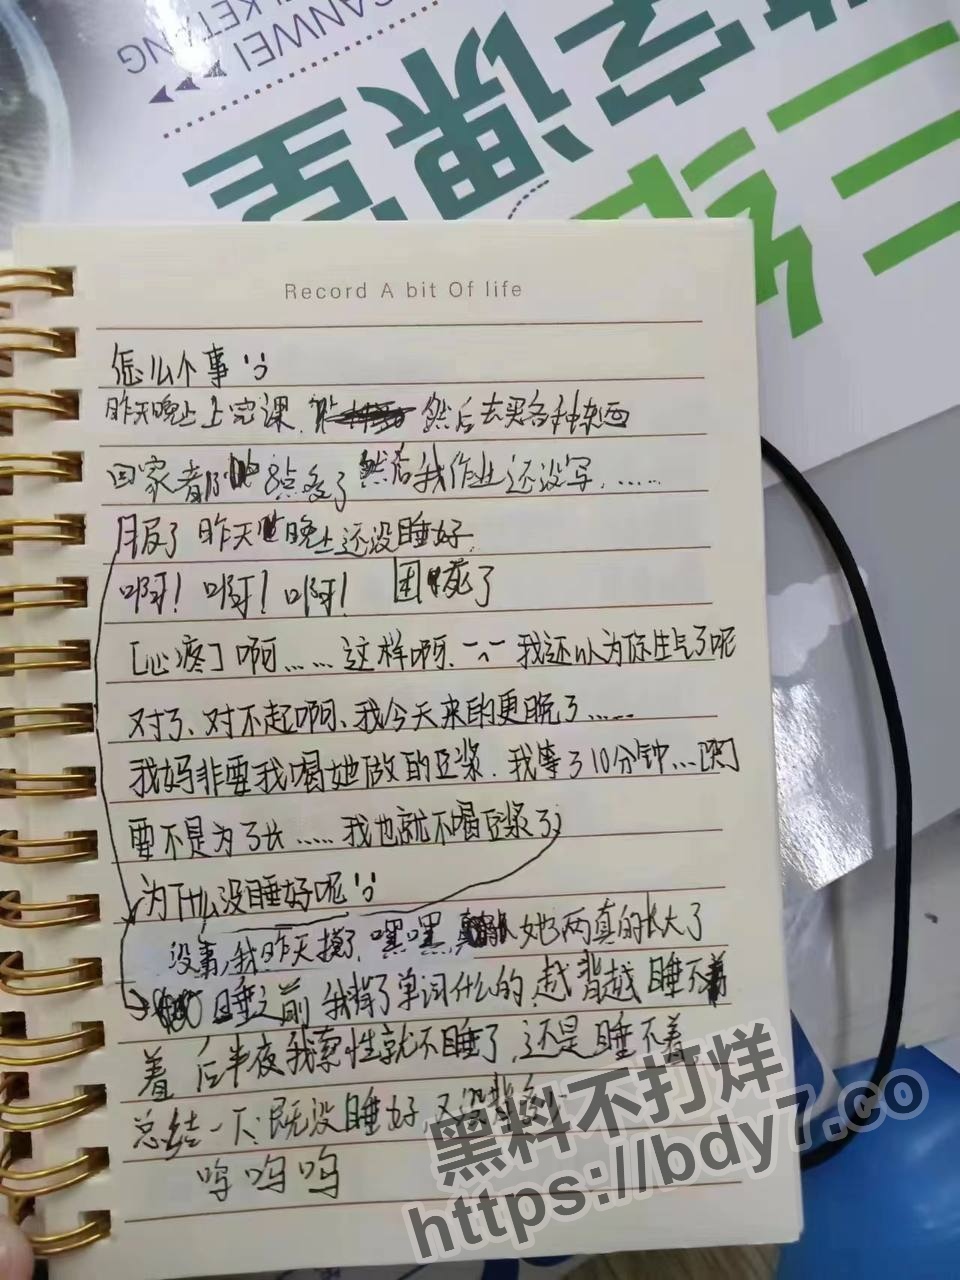 CANWEI
KETANG
三维
数字课堂
Record A bit Of life
怎么个事
昨天晚上上完课, 然后去买各种东西
回家都 8点多了 然后我作业还没写, ……
服了 昨天 晚上还没睡好,
啊! 啊! 啊! 困死了
[心疼] 啊……这样啊、我还以为你生气了呢
对了、对不起啊、我今天来的更晚了……
我妈非要我喝她做的豆浆. 我等了10分钟…啊
要不是为了长……我也就不喝豆浆了
为什么没睡好呢
没事,我昨天 了, 嘿嘿, 她两真的长大了
睡之前 我背了单词什么的, 越背越睡不着
着, 后半夜我索性就不睡了, 还是睡不着,
总结一下: 既没睡好, 又没背
呜呜呜
黑料不打烊
https://bdy7.co